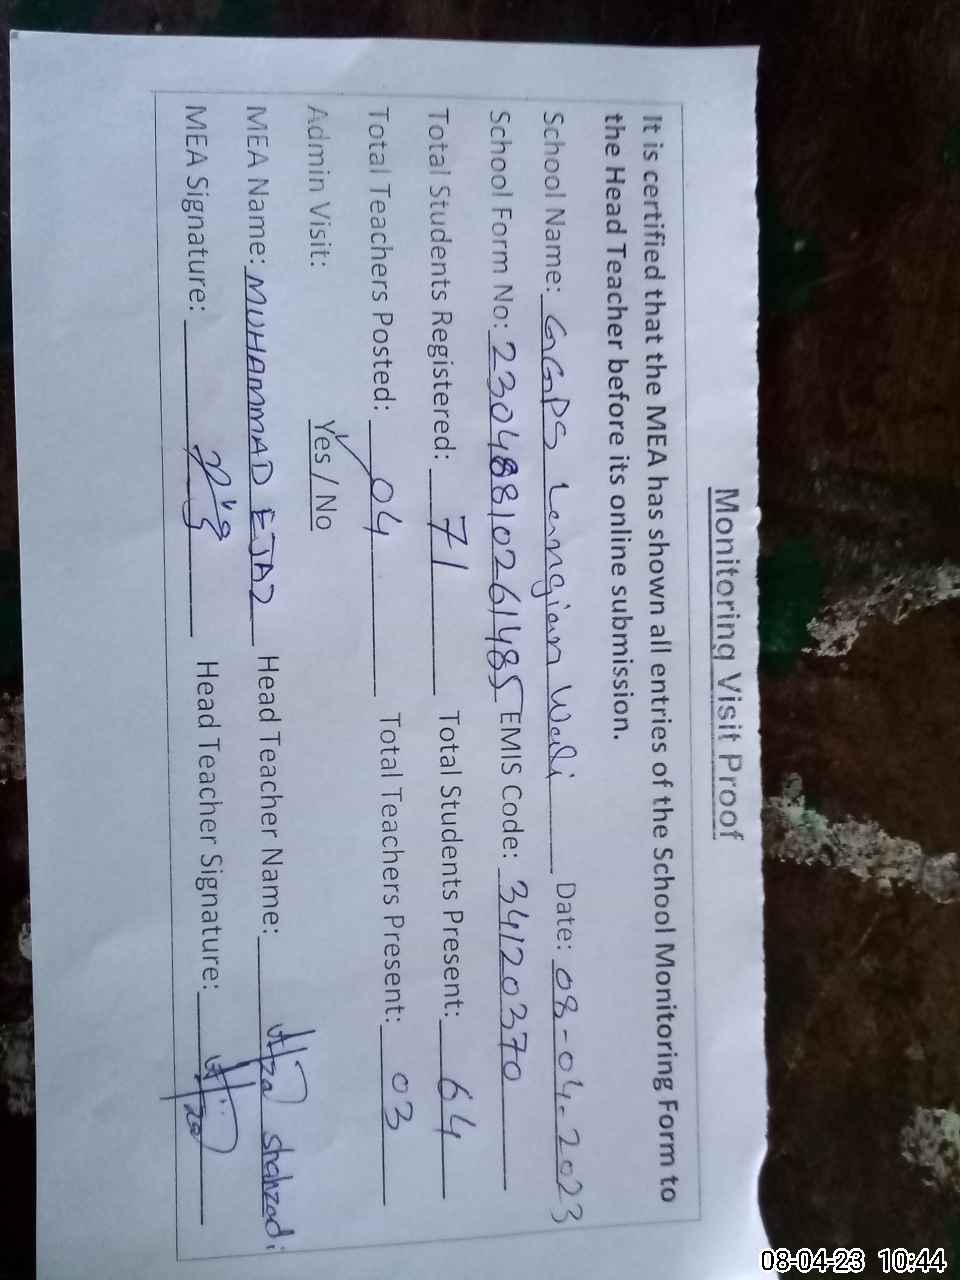 Monitoring Visit Proof
It is certified that the MEA has shown all entries of the School Monitoring Form to
the Head Teacher before its online submission.
School Name: GGPS Langian Wali Date: 08-04-2023
School Form No: 23048810261485 EMIS Code: 34120370
Total Students Registered: 71 Total Students Present: 64
Total Teachers Posted: 04 Total Teachers Present: 03
Admin Visit: Yes / No
MEA Name: MUHAMMAD EJAZ Head Teacher Name: shahzadi
MEA Signature: Head Teacher Signature:
08-04-23 10:44